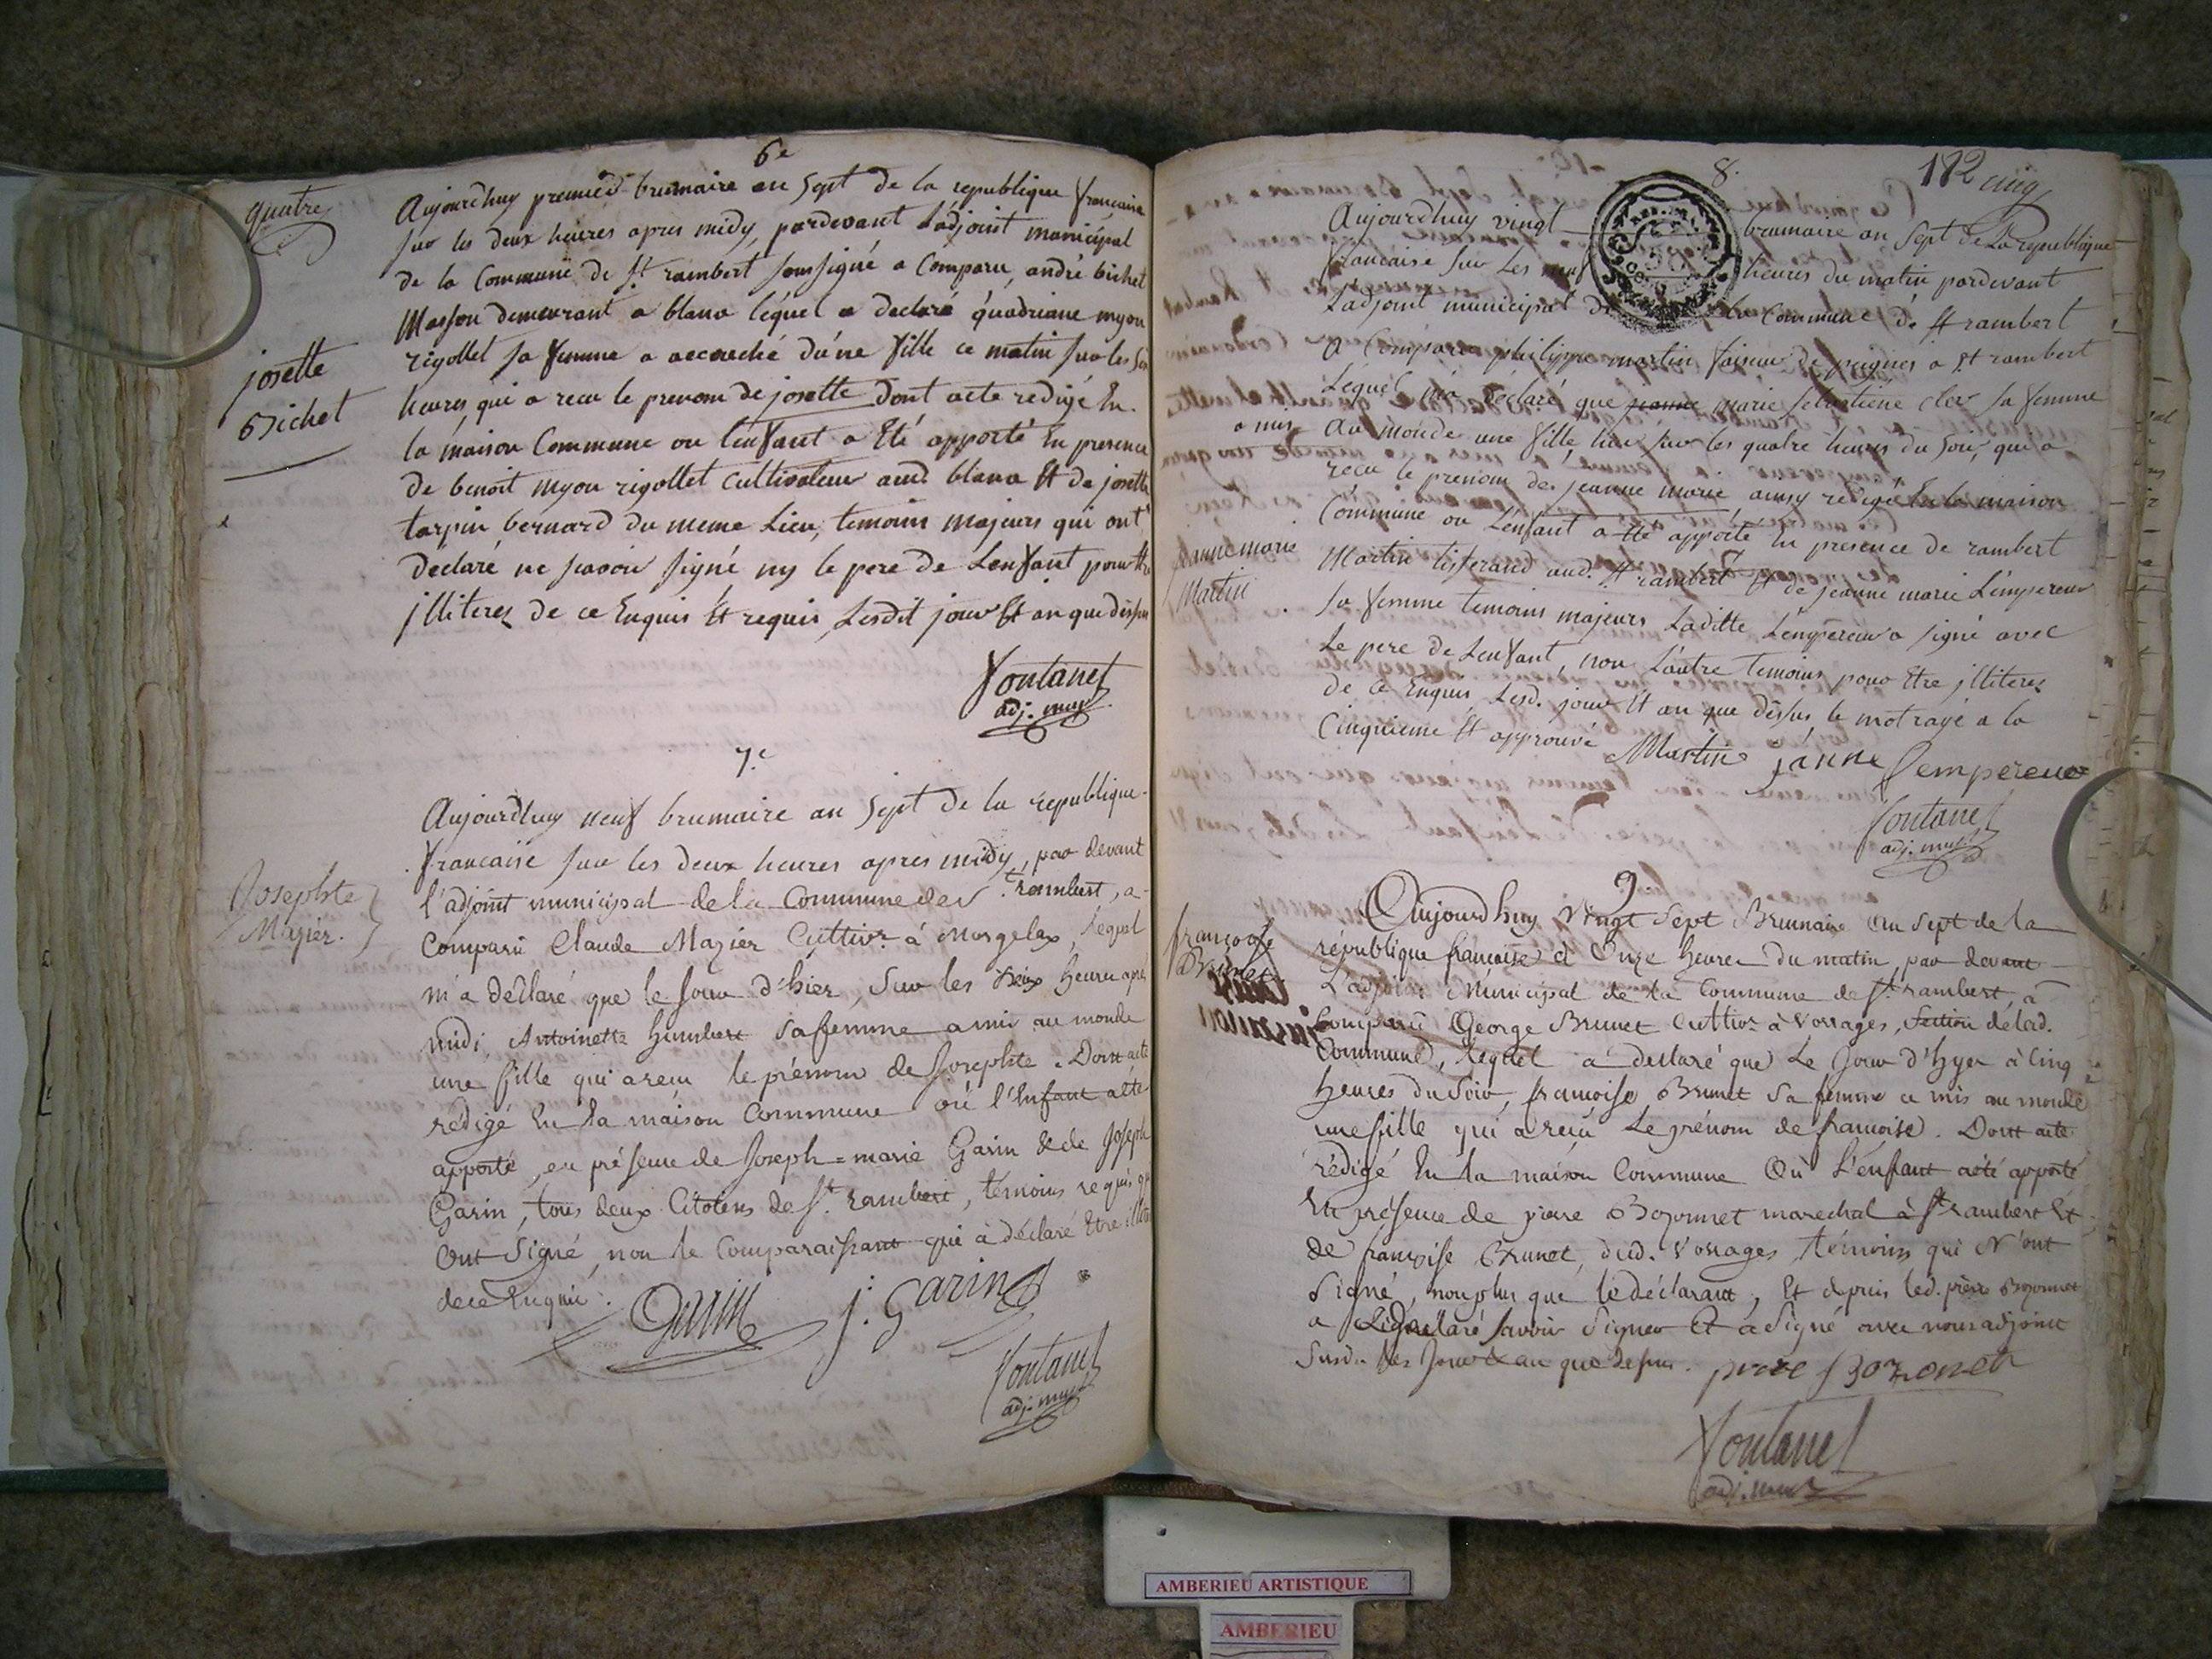 quatre
6e
Aujourdhuy premier brumaire an Sept de la republique francaise
sur les deux heures apres midy, pardevant Ladjoint municipal
de la Commune de St rambert soussigné a Comparu, andré bichet
Masson demeurant a blana léquel a declaré qu'adriane myon
rigollet sa femme a accouché d'une fille ce matin sur les six
heures, qui a recu le prenom de josette Dont acte redigé En
la maison Commune ou lenfant a Eté apporté En presence
de benoit myon rigollet cultivateur aud. blana Et de josette
tarpin bernard du meme Lieu, temoins majeurs qui ont
déclaré ne scavoir signé ny le pere de Lenfant pour Etre
jlliterez de ce Enquis Et requis, Lesdit jour Et an que dessus
josette
Bichet
fontanel
adj. mup
7.e
Aujourdhuy neuf brumaire an Sept de la republique
francaise sur les deux heures apres midy, par devant
l'adjoint municipal de la Commune de St. rambert, a
Comparu Claude Mazier Cultivr. à Morgelas, lequel
m'a déclaré que le jour d'hier, sur les deux heures après
midi, Antoinette humbert sa femme a mis au monde
une fille qui a reçu le prénom de Josephte. Dont acte
rédigé En la maison Commune où l'Enfant a été
apporté, en présence de Joseph=marie Garin & de Joseph
Garin, tous deux Citoiens de St. rambert, témoins requis qui
Ont Signé, non le Comparaissant qui à déclaré Etre
de ce Enquis.
Josephte
Mazier.
Garin
j: Garin
fontanel
adj. mup
8.
182
cinq
Aujourdhuy vingt brumaire an Sept de La republique
francaise sur Les neuf heures du matin pardevant
Ladjoint municipal de la Commune de St rambert
a Comparu philippe martin faiseur de peignes a St rambert
Léquel m'a déclaré que jeanne marie sebastiene cler sa femme
a mis Au monde une fille, hier sur les quatre heures du soir, qui a
recu le prenom de jeanne marie, ainsy redigé En la maison
Commune ou Lenfant a Eté apporté En presence de rambert
Martin tisserand aud. St rambert Et de jeanne marie Lempereur
sa femme temoins majeurs Laditte Lempereur a signé avec
Le pere de Lenfant, non Lautre temoins pour Etre jlliterez
de ce Enquis, Lesd. jour Et an que dessus le mot rayé a la
Cinquieme Et approuvé
jeanne marie
Martin
Martin
jánne Lempereur
fontanel
adj. mup
9
Aujourdhuy Vingt Sept Brumaire An Sept de la
république française à Onze heures du matin, par devant
L'adjoint Municipal de la Commune de St. rambert, à
Comparu George Brunet cultivr. à Vorages, Section de lad.
Commune, lequel a déclaré que Le Jour d'hyer à cinq
heures du Soir, françoise Brunet Sa femme a mis au monde
une fille qui a reçu Le prénom de françoise. Dont acte
rédigé En la maison Commune Où L'énfant a été apporté
En présence de piere Bozonnet marechal à St rambert Et
de françoise Brunet, dud. Vorages, témoins qui N'ont
Signé, non plus que le déclarant, Et depuis led. piere Bozonnet
a déclaré savoir Signer Et a Signé avec nous adjoint
Susd. les Jour & an que dessus.
françoise
Brunet
piere Bozonet
fontanel
adj. mup
AMBERIEU ARTISTIQUE
AMBERIEU